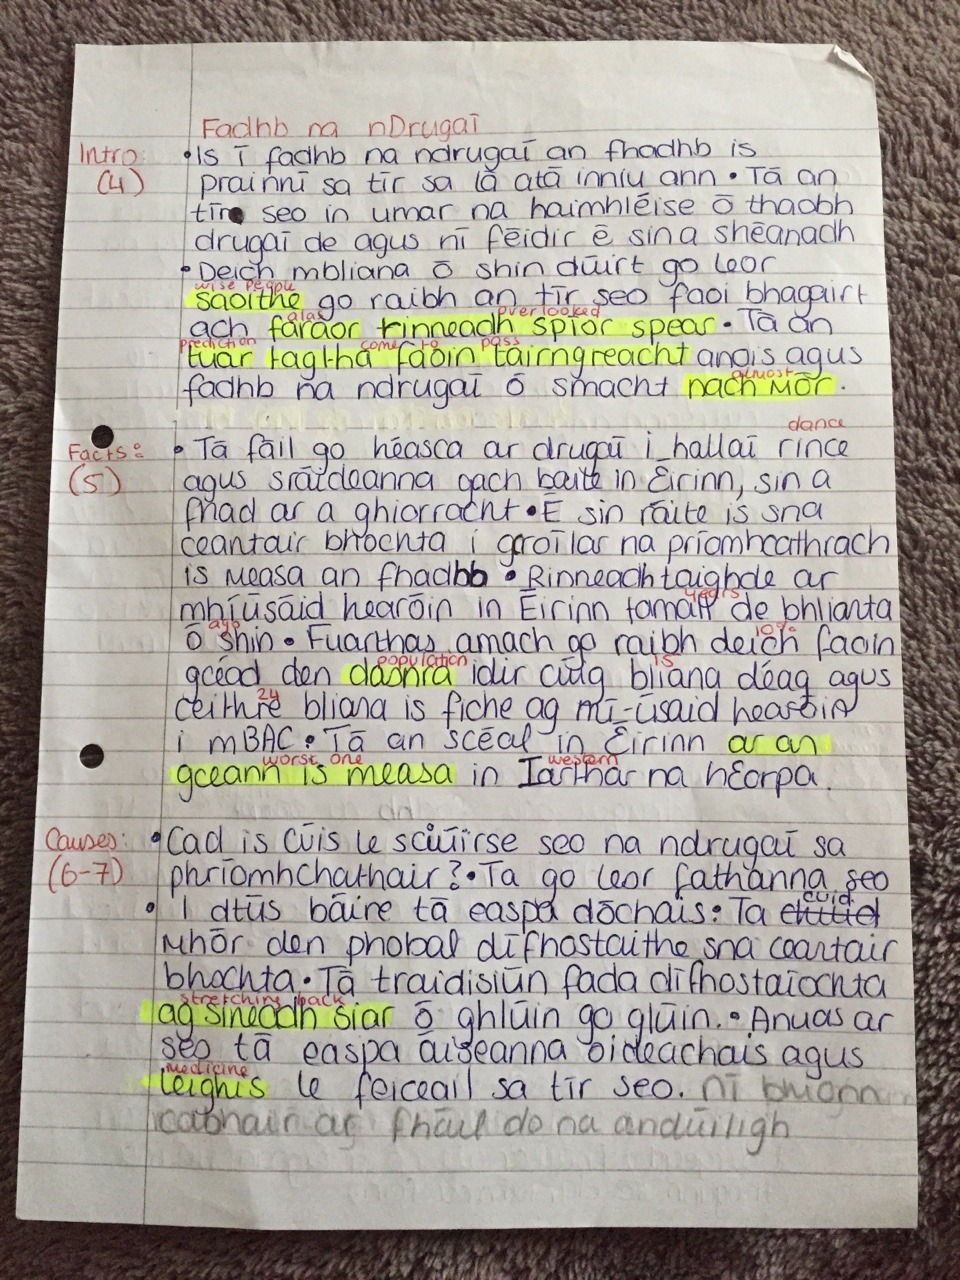 Fadhb na nDrugaī
Intro: •Is Ī fadhb na ndrugaī an fhadhb is
(4) prainnī sa tīr sa lā atā inniu ann • Tā an
tīr seo in umar na haimhlēise ō thaobh
drugaī de agus nī fēidir ē sin a shēanadh
•Deich mbliana ō shin dūirt go leor
wise people
saoithe go raibh an tīr seo faoi bhagairt
alas overlooked
ach faraor rinneadh spior spear • Tā an
prediction come to pass
tuar tagtha faoin tairngreacht anois agus
almost
fadhb na ndrugaī ō smacht nach mōr.
dance
Facts: • Tā fāil go hēasca ar drugaī i hallaī rince
(5) agus srāideanna gach baile in Ēirinn, sin a
fhad ar a ghiorracht • Ē sin rāite is sna
ceantair bhochta i groīlar na prīomhcathrach
is measa an fhadhb • Rinneadh taighde ar
years
mhīūsāid hearōin in Ēirinn tamall de bhlianta
ago 10%
ō shin • Fuarthas amach go raibh deich faoin
population 15
gcēad den daonra idir cūig bliana dēag agus
24
ceithre bliana is fiche ag mī-ūsaid hearōin
i mBAC • Tā an scēal in Ēirinn ar an
worst one western
gceann is measa in Iarthar na hEorpa.
Causes: •Cad is Cūis le sciūīrse seo na ndrugaī sa
(6-7) phrīomhchathair? • Ta go leor fathanna seo
cuid
• I dtūs bāire tā easpa dōchais. Ta
mhōr den phobal dīfhostaithe sna ceartair
bhochta • Tā traidisiūn fada dīfhostaīochta
stretching back
ag sīneadh siar ō ghlūin go glūin. • Anuas ar
seo tā easpa āiseanna oideachais agus
medicine
leighis le feiceail sa tīr seo. nī bhīonn
cabhair ar fhāil do na andūiligh